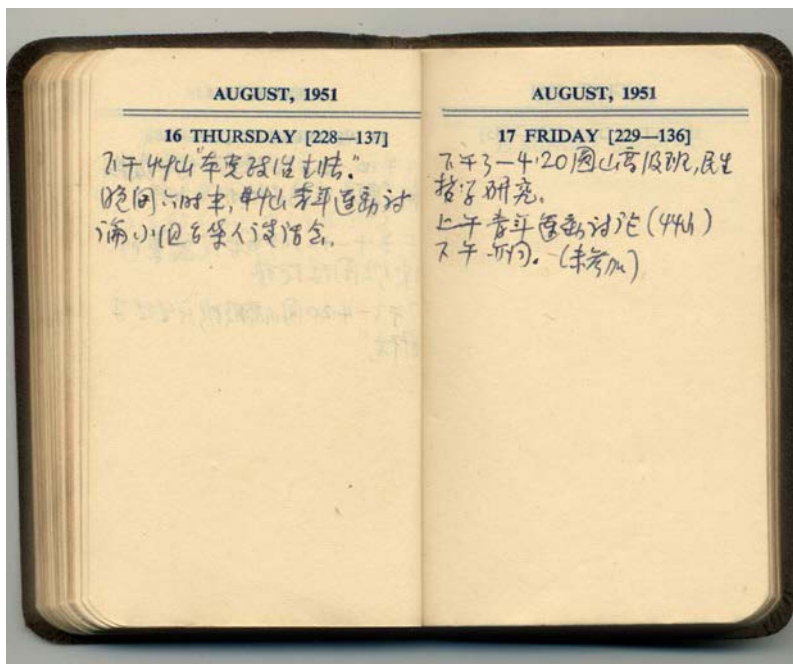 AUGUST, 1951
16 THURSDAY [228—137]
下午44山"本党政治主張."
晚间六时半,44山青年运动讨
论小组召集人谈话会.
AUGUST, 1951
17 FRIDAY [229—136]
下午3—4·20圆山高级班,民生
哲学研究.
上午青年运动讨论(44山)
下午 仝. (未参加)